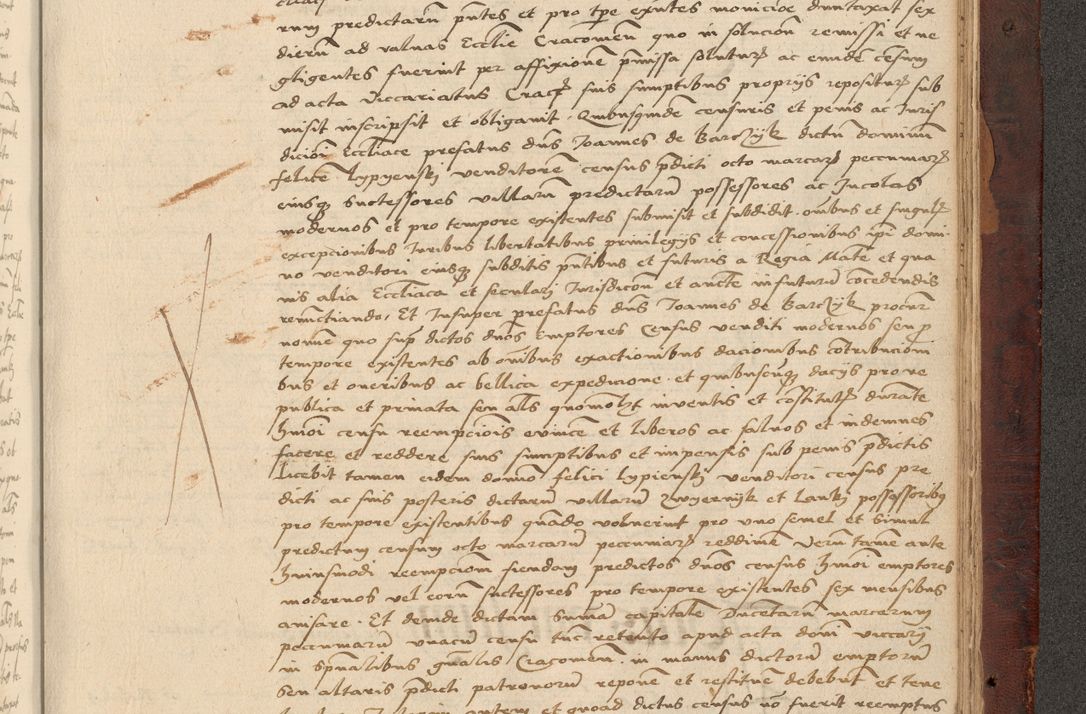 rum predictarum pntes et pro tpe exntes monicioe duntaxat sex
dierum ad valuas Ecclie Cracouien quo in solucion remissi et ne
gligentes fuerint per affixionem pmissa soluturos ac eundem censum
ad acta Viccariatus Crac suis sumptibus proprijs reposituros sub
misit inscripsit et obligauit. Quibusquidem censuris et penis ac Juris
dicioni Eccliace prefatus dns Joannes de Barczyk dictum dominum
felicem Lypyenskj venditorem census pdicti octo marcarum pecuniarum
eiusq successores villarum predictarum possessores ac Incolas
modernos et pro tempore existentes submisit et subdidit. omibus et singulis
excepcionibus Juribus libertatibus priuilegijs et concessionibus ipi domi-
no venditori eiusq subditis pntibus et futuris a Regia Mate et qua
uis alia Eccliaca et secularj Jurisdicon et aucte in futurum cocedendis
renunctiando. Et Insuper prefatus dns Joannes de Barczyk procur
nomine quo sup dictos dnos Emptores Census venditi modernos seu p
tempore existentes ab omibus exactionibus dacionibus cotribucioni
bus et oneribus ac bellica expedicione. et quibuscunq dacijs pro re
publica et priuata seu als quomolt inuentis et costitutis durate
hmoi censu reempciois euince et liberos ac saluos et indemnes
facere et reddere suis sumptibus et impensis sub penis pdictis
licebit tamen eidem domino felici Lypienskj venditori census pre
dicti ac suis posteris dictarum villarum Zwyernyk et Lankj possessoribus
pro tempore existentibus quando voluerint pro vno semel et simul
predictum censum octo marcarum pecuniarum reddimere Verum tamen ante
huiusmodi reempcionem fiendam predictos dnos census hmoi emptores
modernos vel eorum successores pro tempore existentes sex mensibus
auisare. Et deinde dictam Sumam capitalem Ducetarum marcarum
pecuniarum vnacum censu tunc retento apud acta domi viccarij
in spualibus gnalis Cracouien. in manus dictorum emptorum
seu altaris pdicti patronorum reponere et restituere debebunt et tene
autem et quoad dictus census no fuerit reemptus